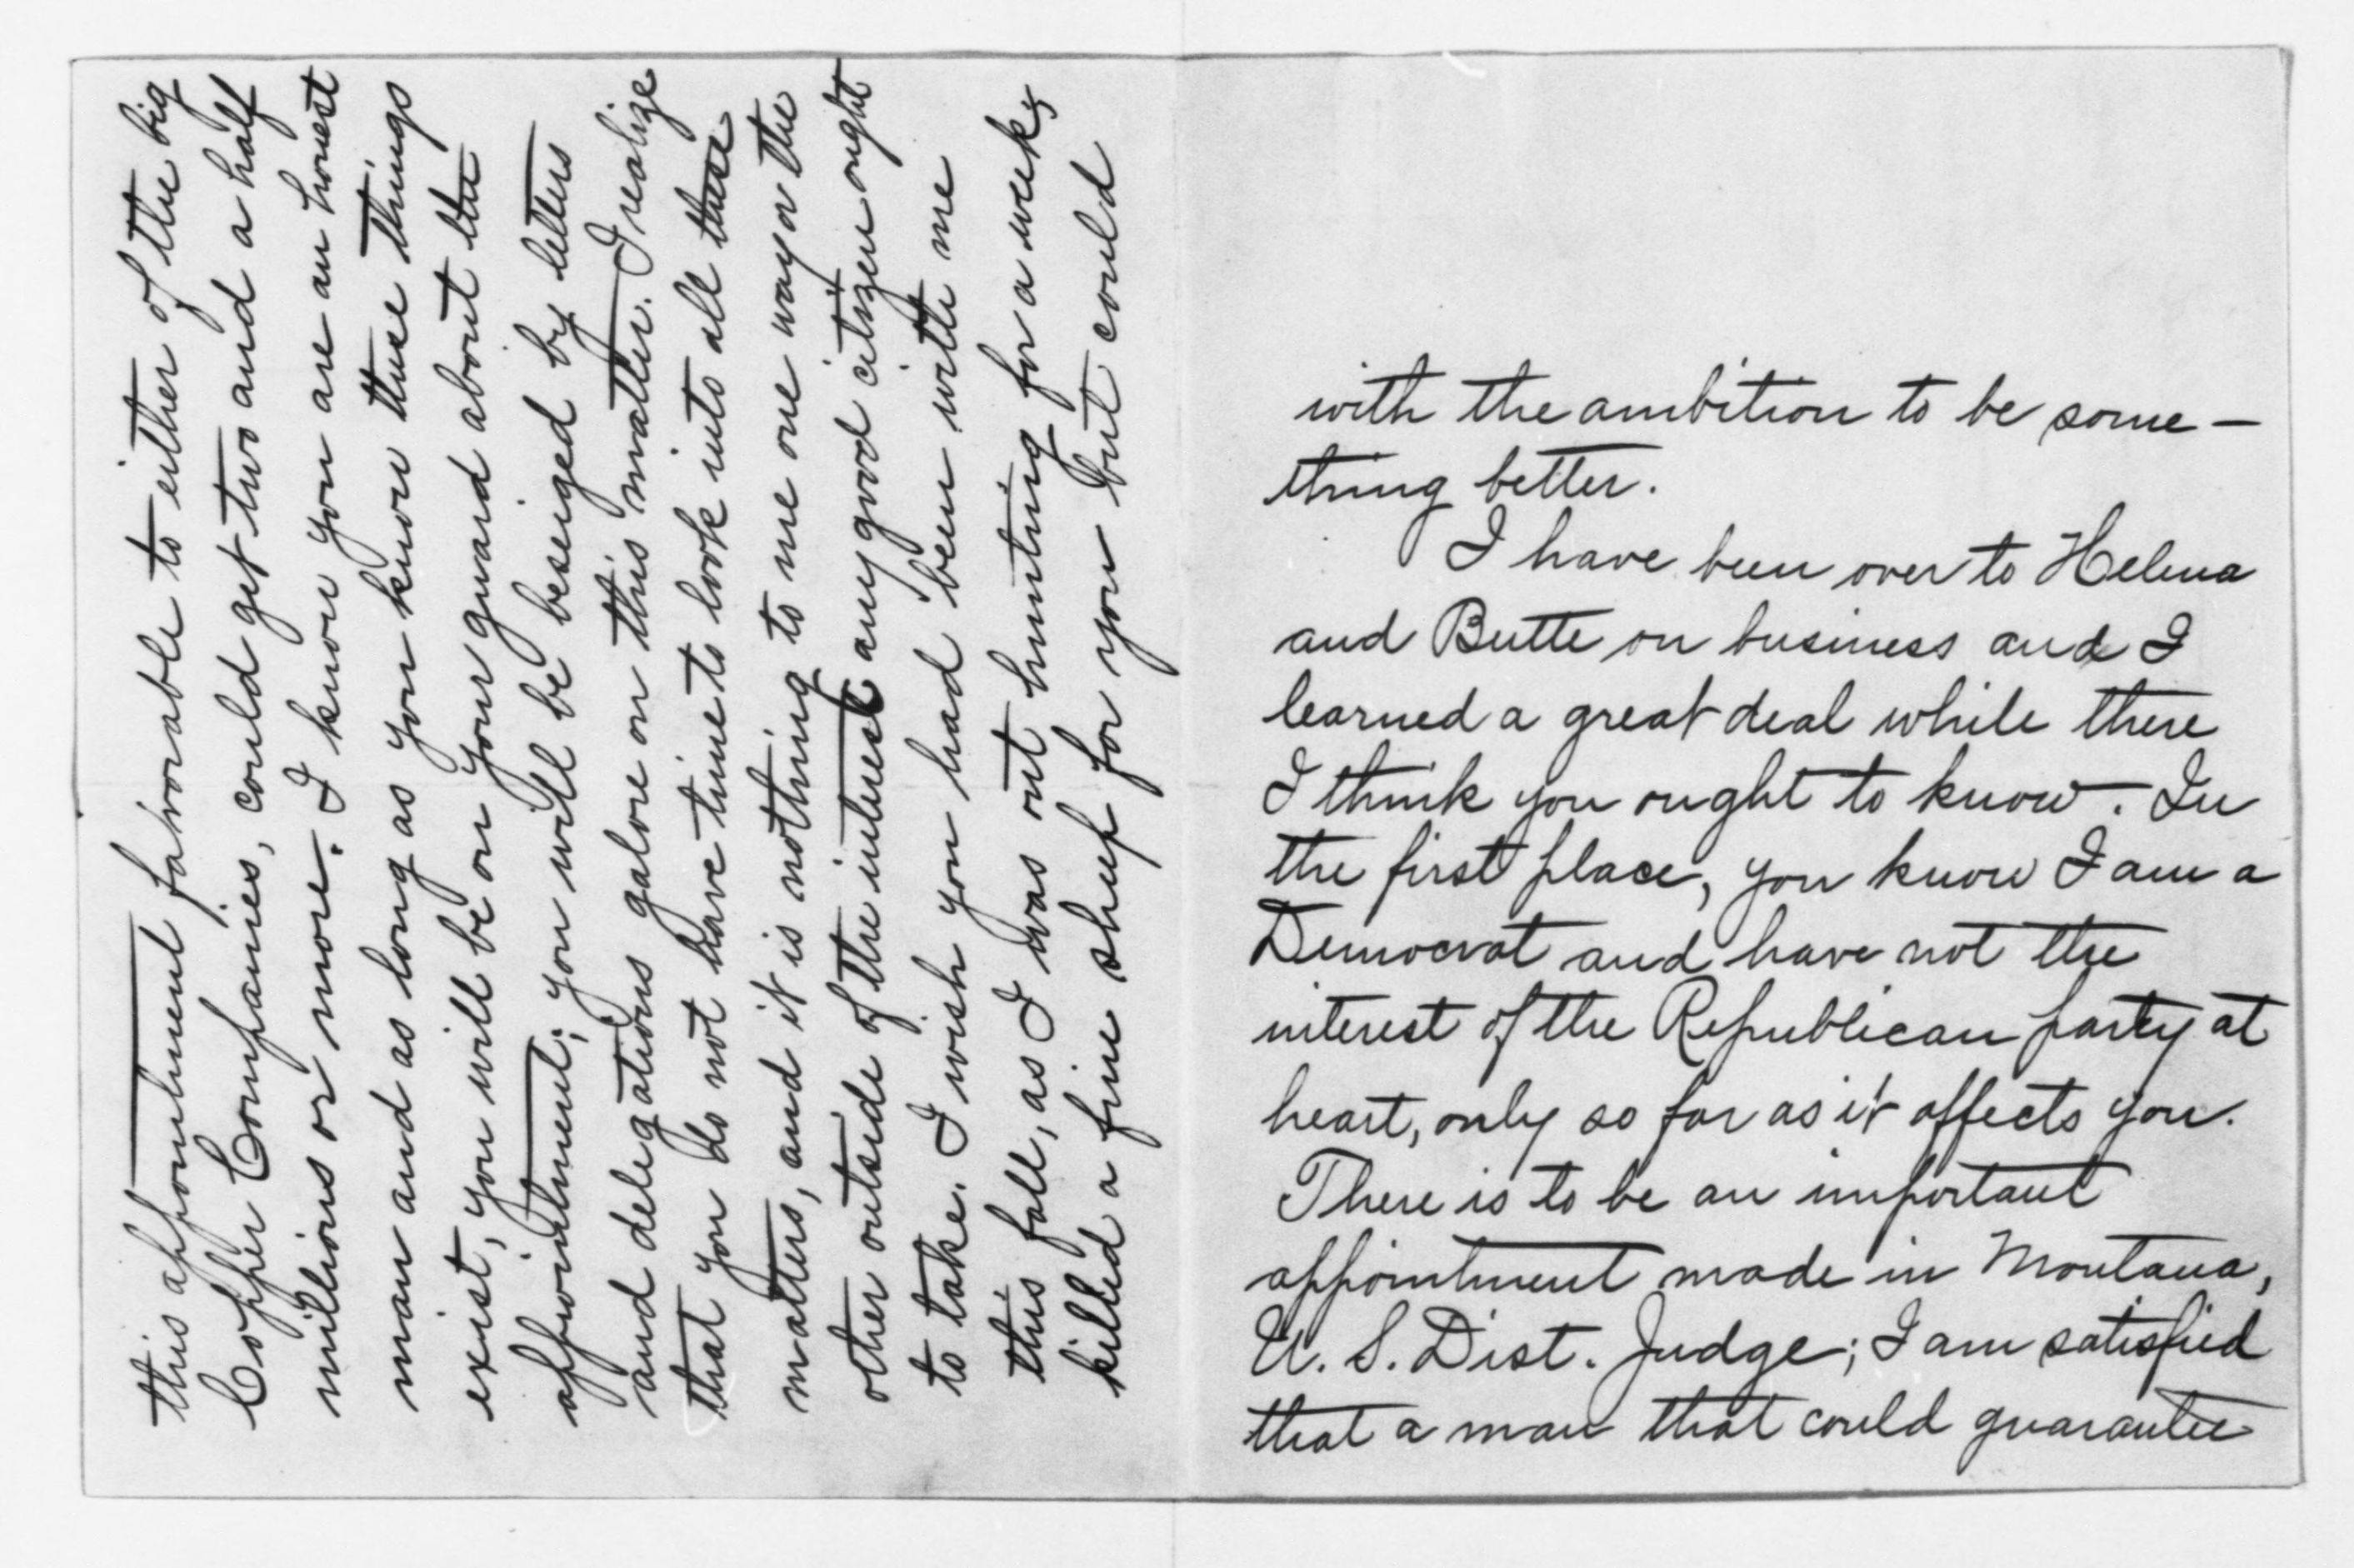 with the ambition to be some-
thing better.
I have been over to Helena
and Butte on business and I
learned a great deal while there
I think you ought to know. In
the first place, you know I am a
Democrat and have not the
interest of the Republican party at
heart, only so far as it affects you.
There is to be an important
appointment made in Montana,
U. S. Dist. Judge; I am satisfied
that a man that could guarantee
this appointment favorable to either of the big
Copper Companies, could get two and a half
millions or more. I know you are an honest
man and as long as you know these things
exist, you will be on your guard about the
appointment; you will be beseiged by letters
and delegations galore on this matter. I realize
that you do not have time to look into all these
matters, and it is nothing to me one way or the
other outside of the interest any good citizen ought
to take. I wish you had been with me
this fall, as I was out hunting for a week,
killed a fine sheep for you but could